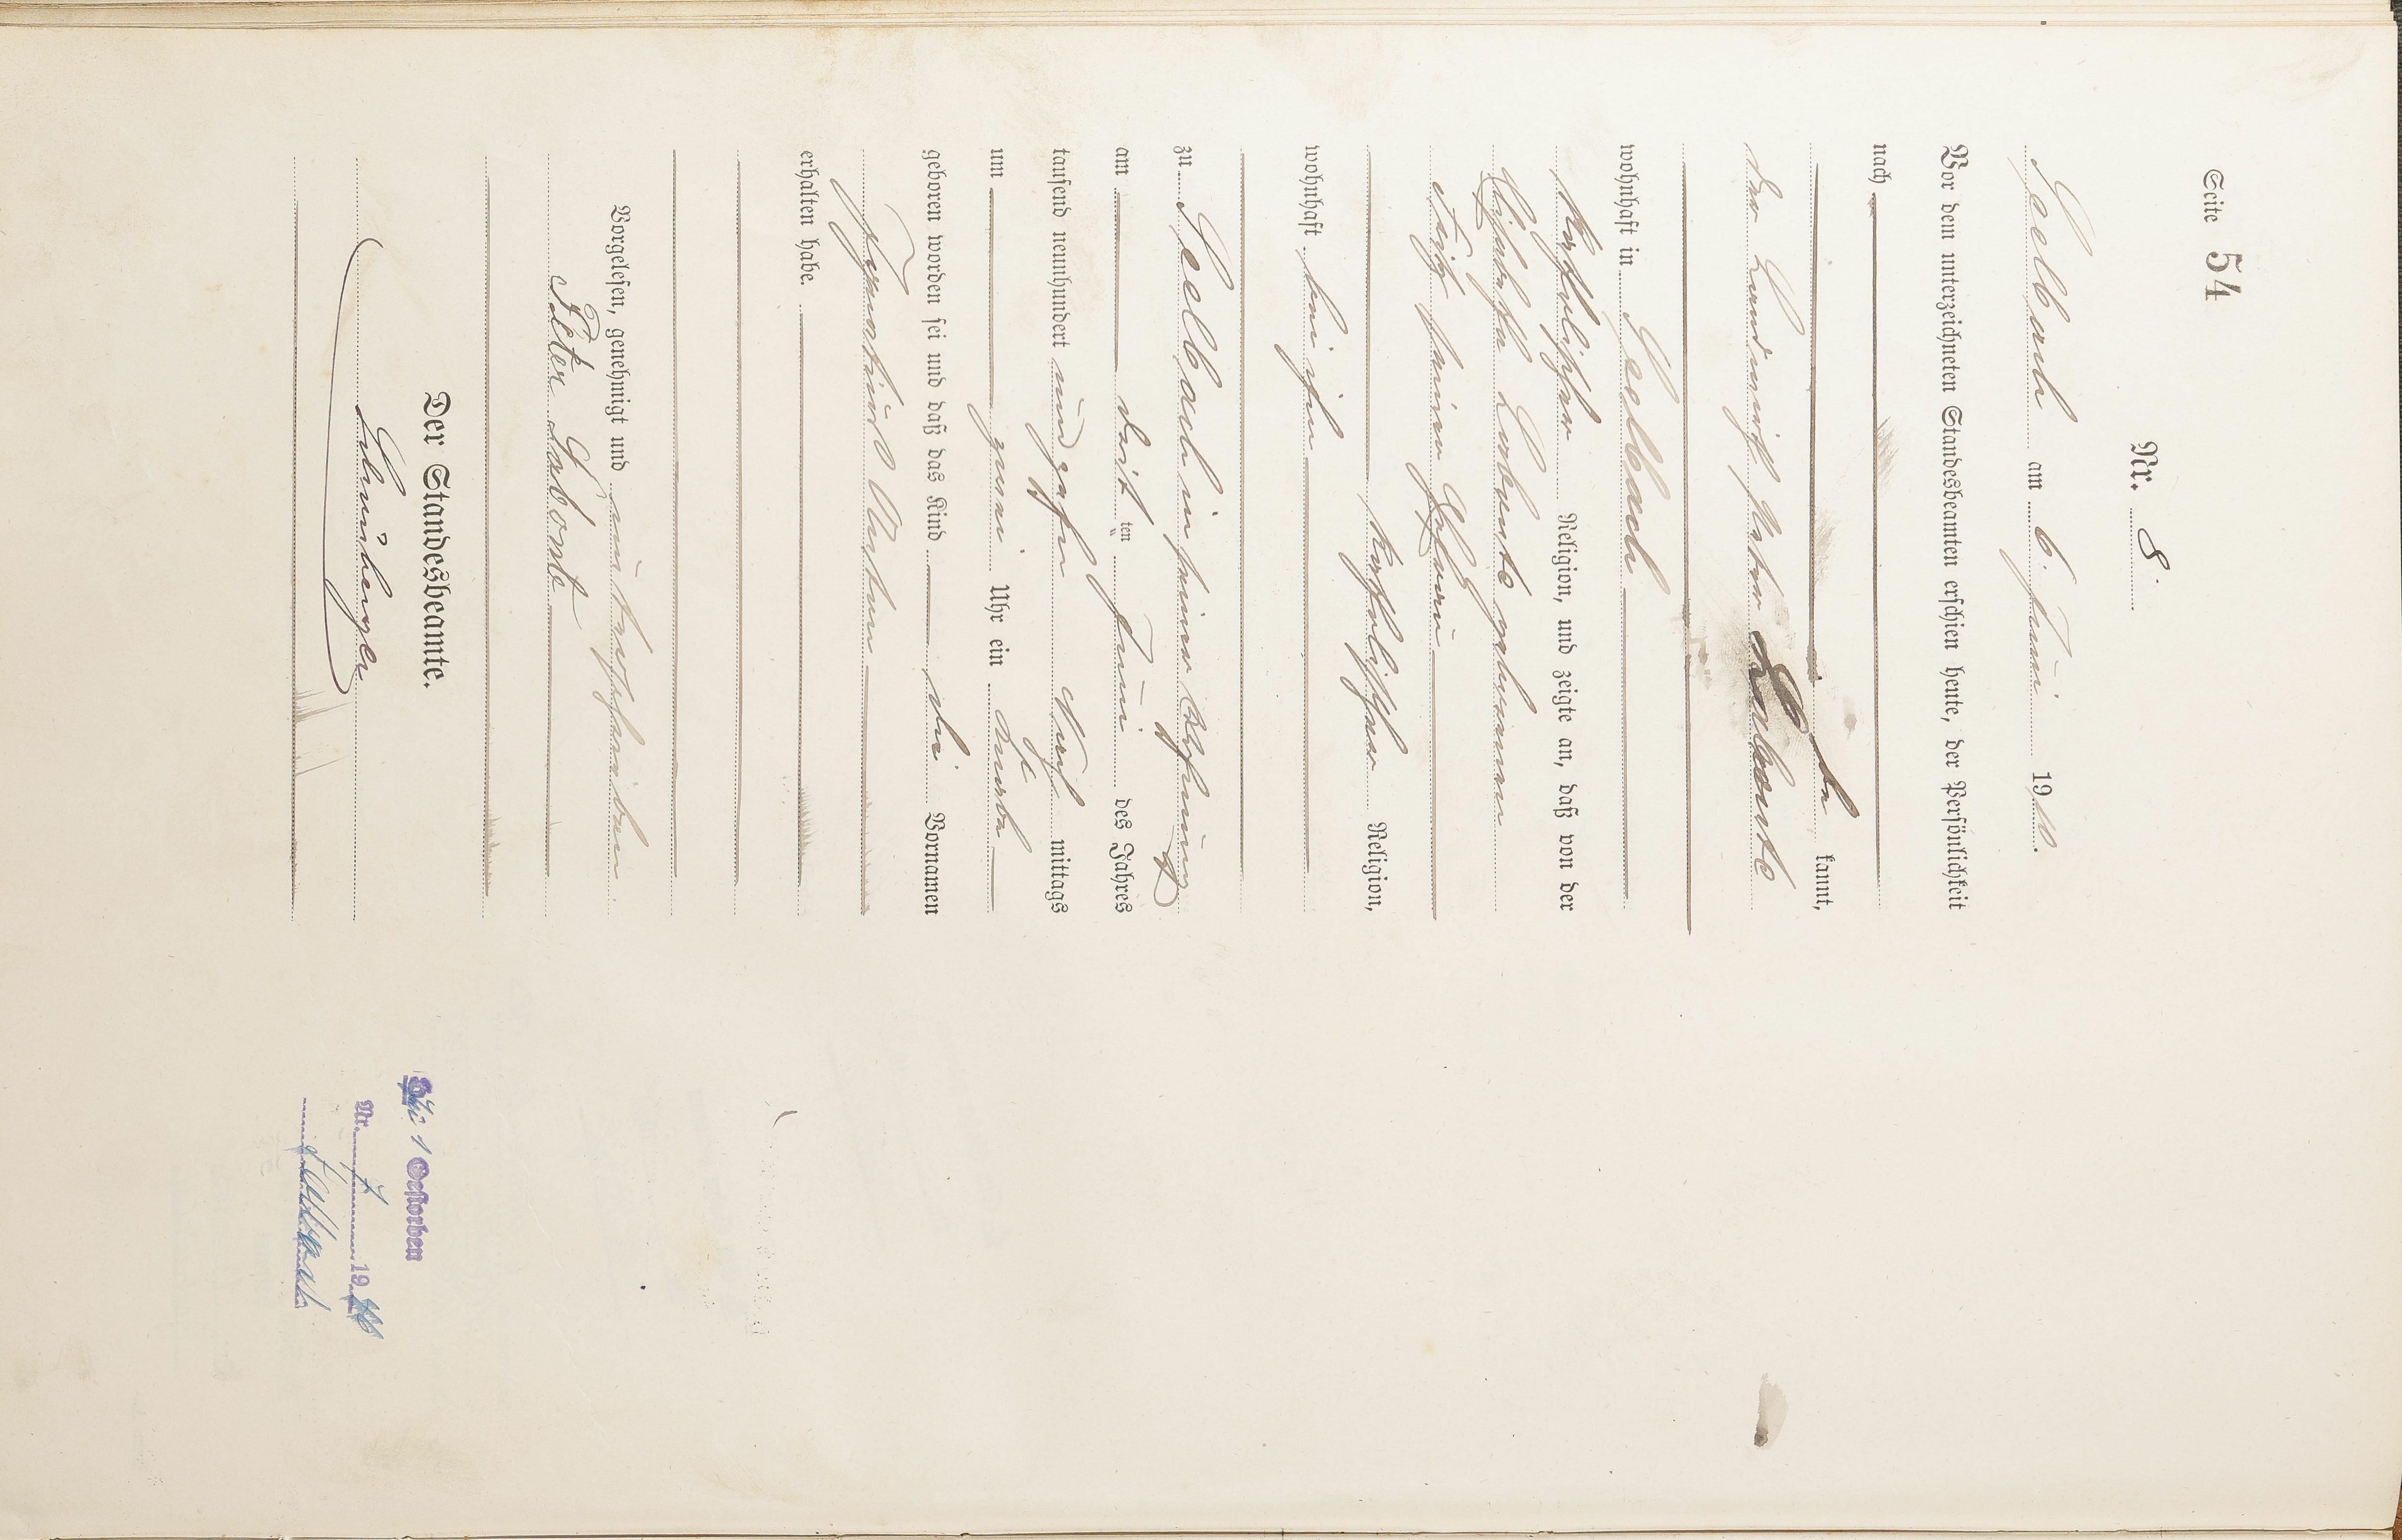 Seite 54
Nr. 8.
Seelbach am 6. Juni 1910.
Vor dem unterzeichneten Standesbeamten erschien heute, der Persönlichkeit
nach
be kannt,
der Landwirth Peter Labonte
wohnhaft in Seelbach
katholischer Religion, und zeigte an, daß von der
Labonte geborenen
seiner Ehefrau
katholischer Religion,
wohnhaft bei ihm
zu Seelbach in seiner Wohnung
am ten Juni des Jahres
tausend neunhundert und zehn Nach mittags
um zwei Uhr ein Knabe
geboren worden sei und daß das Kind die Vornamen
Anton
erhalten habe.
Vorgelesen, genehmigt und unterschrieben
Peter Labonte
Der Standesbeamte.
Gestorben
Nr. 7 19